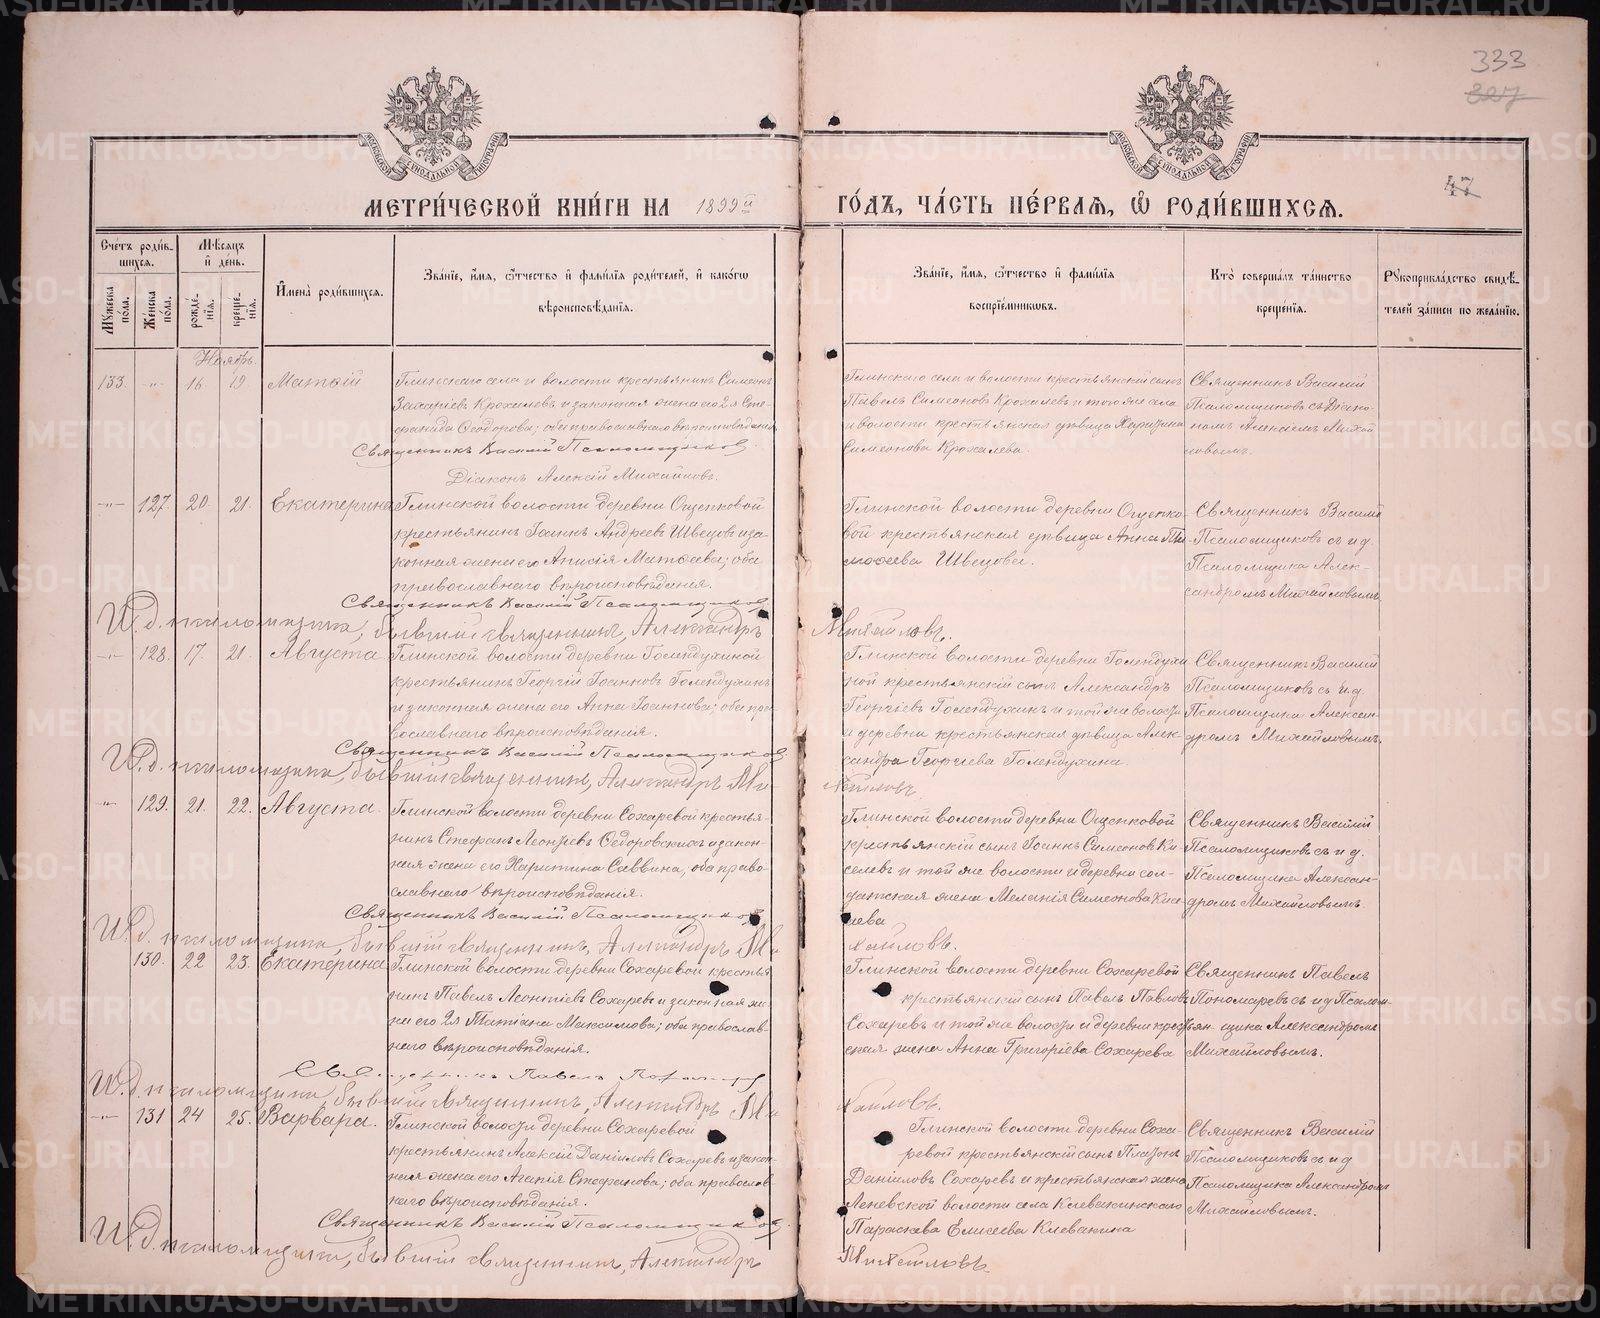 333
327
47
МЕТРИ́ЧЕСКОЙ КНИ́ГИ НА 1899й
ГО́ДЪ, ЧА́СТЬ ПЕ́РВАѦ, Ѡ РОДИ́ВШИХСѦ.
Сче́тъ роди́вшихсѧ.
Мѣ́сѧцъ и де́нь.
Му́жеска по́ла.
Же́нска по́ла.
рожде́нїѧ.
креще́нїѧ.
Имена̀ роди́вшихсѧ.
Зва́нїе, и́мѧ, ѻ́тчество и фами́лїѧ роди́телей, и како́гѡ
вѣроисповѣ́данїѧ.
Зва́нїе, и́мѧ, ѻ́тчество и фами́лїѧ
воспрїе́мникѡвъ.
Кто̀ соверша́лъ та́инство
креще́нїѧ.
Рꙋкоприкла́дство свидѣ́-
телей за́писи по жела́нїю.
Ноябрь.
133. -"- 16. 19 Матѳій
Глинскаго села и волости крестьянинъ Симеонъ
Захаріевъ Крохалевъ и законная жена его 2я Сте-
фанида Ѳеодорова; оба православнаго вѣроисповѣданія
Священникъ Василій Псаломщиковъ
Діаконъ Алексій Михайловъ.
Глинскаго села и волости крестьянскій сынъ
Павелъ Симеоновъ Крохалевъ и того же села
и волости крестьянская дѣвица Харитина
Симеонова Крохалева.
Священникъ Василій
Псаломщиковъ съ Діако-
номъ Алексіемъ Михай
ловымъ.
-"- 127. 20. 21. Екатерина
Глинской волости деревни Ощепковой
крестьянинъ Іоаннъ Андреевъ Швецовъ и за-
конная жена его Анисія Матѳеева; оба
православнаго вѣроисповѣданія.
Священникъ Василій Псаломщиковъ
И. д. псаломщика, бывшій священникъ, Александръ
Михайловъ.
Глинской волости деревни Ощепко-
вой крестьянская дѣвица Анна Ти-
моѳеева Швецова.
Священникъ Василій
Псаломщиковъ съ и д.
Псаломщика Алек-
сандромъ Михайловымъ
-"- 128. 17. 21. Августа
Глинской волости деревни Голендухиной
крестьянинъ Георгій Іоанновъ Голендухинъ
и законная жена его Анна Іоаннова; оба пра-
вославнаго вѣроисповѣданія.
Священникъ Василій Псаломщиковъ
И. д. псаломщика, бывшій священникъ, Александръ Ми-
хайловъ
Глинской волости деревни Голендухи
ной крестьянскій сынъ Александръ
Георгіевъ Голендухинъ и той же волости
и деревни крестьянская дѣвица Алек-
сандра Георгіева Голендухина.
Священникъ Василій
Псаломщиковъ съ и.д.
Псаломщика Алексан-
дромъ Михайловымъ.
-"- 129. 21. 22. Августа
Глинской волости деревни Сохаревой крестья-
нинъ Стефанъ Леонтіевъ Ѳедоровскихъ и закон-
ная жена его Харистина Саввина, оба право-
славнаго вѣроисповѣданія.
Священникъ Василій Псаломщиковъ
И. д. псаломщика, бывшій священникъ, Александръ Ми
хайловъ.
Глинской волости деревни Ощепковой
крестьянскій сынъ Іоаннъ Симеоновъ Ки
селевъ и той же волости и деревни сол-
датская жена Меланія Симеонова Кисе-
лева
Священникъ Василій
Псаломщиковъ съ и д.
Псаломщика Алексан-
дромъ Михайловымъ
130. 22 23. Екатерина
Глинской волости деревни Сохаревой крестья
нинъ Павелъ Леонтіевъ Сохаревъ и законная же-
на его 2я Татіана Максимова; оба православ-
наго вѣроисповѣданія.
Священникъ Павелъ Пономаревъ
И. д. псаломщика, бывшій священникъ, Александръ Ми
хайловъ.
Глинской волости деревни Сохаревой
крестьянскій сынъ Павелъ Павловъ
Сохаревъ и той же волости и деревни крестьян-
ская жена Анна Григоріева Сохарева
Священникъ Павелъ
Пономаревъ съ и д Псалом-
щика Александромъ
Михайловымъ.
-"- 131 24 25. Варвара.
Глинской волости деревни Сохаревой
крестьянинъ Алексій Даніиловъ Сохаревъ и закон-
ная жена его Агапія Стефанова; оба православ
наго вѣроисповѣданія.
Священникъ Василій Псаломщиковъ.
И. д. псаломщика, бывшій священникъ, Александръ
Михайловъ.
Глинской волости деревни Соха-
ревой крестьянскій сынъ Платонъ
Даніиловъ Сохаревъ и крестьянская жена
Леневской волости села Клевакинскаго
Параскева Елисеева Клевакина
Священникъ Василій
Псаломщиковъ съ и д
Псаломщика Александромъ
Михайловымъ.
METRIKI.GASO-URAL.RU